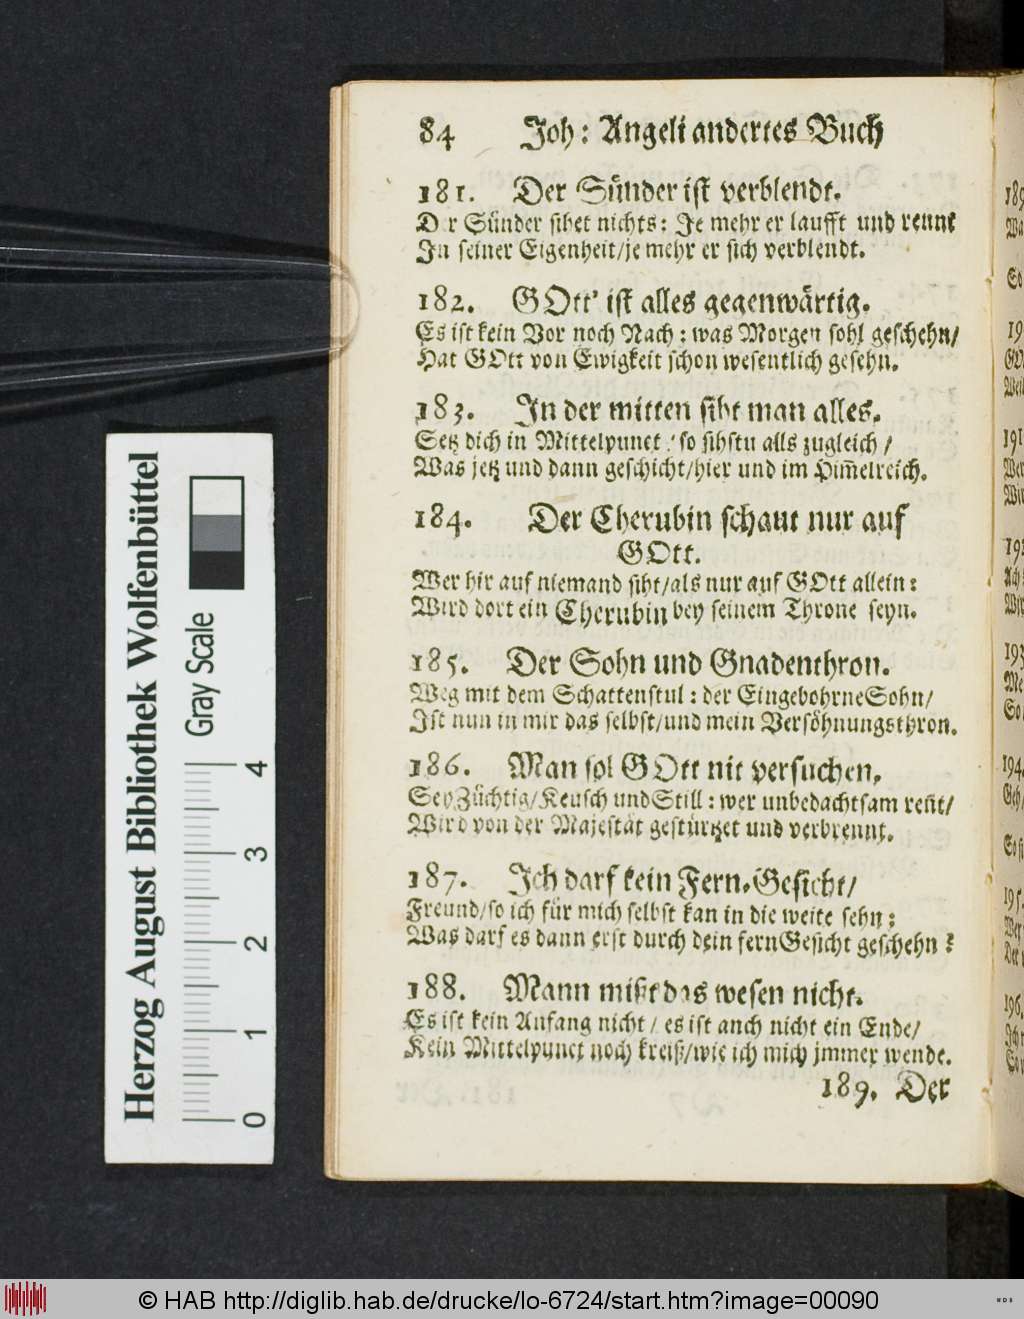 84 Joh: Angeli andertes Buch
181. Der Sünder ist verblendt.
D r Sünder sihet nichts: Je mehr er laufft und rennt
In seiner Eigenheit/je mehr er sich verblendt.
182. GOtt' ist alles gegenwärtig.
Es ist kein Vor noch Nach: was Morgen sohl geschehn/
Hat GOtt von Ewigkeit schon wesentlich gesehn.
183. In der mitten siht man alles.
Setz dich in Mittelpunct / so sihstu alls zugleich /
Was jetz und dann geschicht/hier und im Him̄elreich.
184. Der Cherubin schaut nur auf
GOtt.
Wer hir auf niemand siht/als nur auf GOtt allein:
Wird dort ein Cherubin bey seinem Throne seyn.
185. Der Sohn und Gnadenthron.
Weg mit dem Schattenstul: der EingebohrneSohn/
Ist nun in mir das selbst/und mein Versöhnungsthron.
186. Man sol GOtt nit versuchen.
Sey Züchtig/Keusch und Still: wer unbedachtsam ren̄t/
Wird von der Majestät gestürtzet und verbrennt.
187. Ich darf kein Fern-Gesicht/
Freund/so ich für mich selbst kan in die weite sehn;
Was darf es dann erst durch dein fernGesicht geschehn?
188. Mann mißt das wesen nicht.
Es ist kein Anfang nicht / es ist auch nicht ein Ende/
Kein Mittelpunct noch kreiß/wie ich mich jmmer wende.
189. Der
Herzog August Bibliothek Wolfenbüttel
Gray Scale
0 1 2 3 4
© HAB http://diglib.hab.de/drucke/lo-6724/start.htm?image=00090